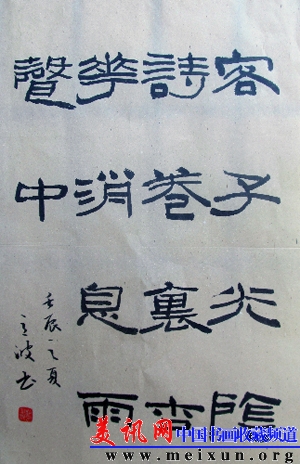 客子光陰
詩卷裏杏
華消息雨
聲中
壬辰之夏
立波书
美讯网 中国书画收藏频道
www.meixun.org